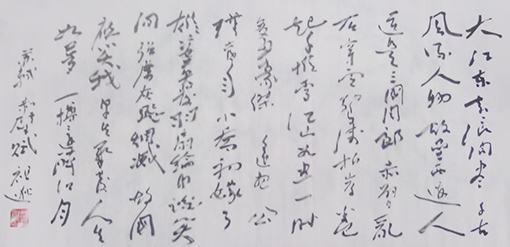 大江东去浪淘尽千古
风流人物故垒西边人
道是三國周郎赤壁亂
石穿空驚涛拍岸卷
起千堆雪江山如画一时
多少豪傑遥想公
瑾当年小喬初嫁了
雄姿英发羽扇纶巾谈笑
间强虜灰飛烟滅故國
應笑我早生華发人生
如夢一樽還酹江月
蘇軾赤壁賦